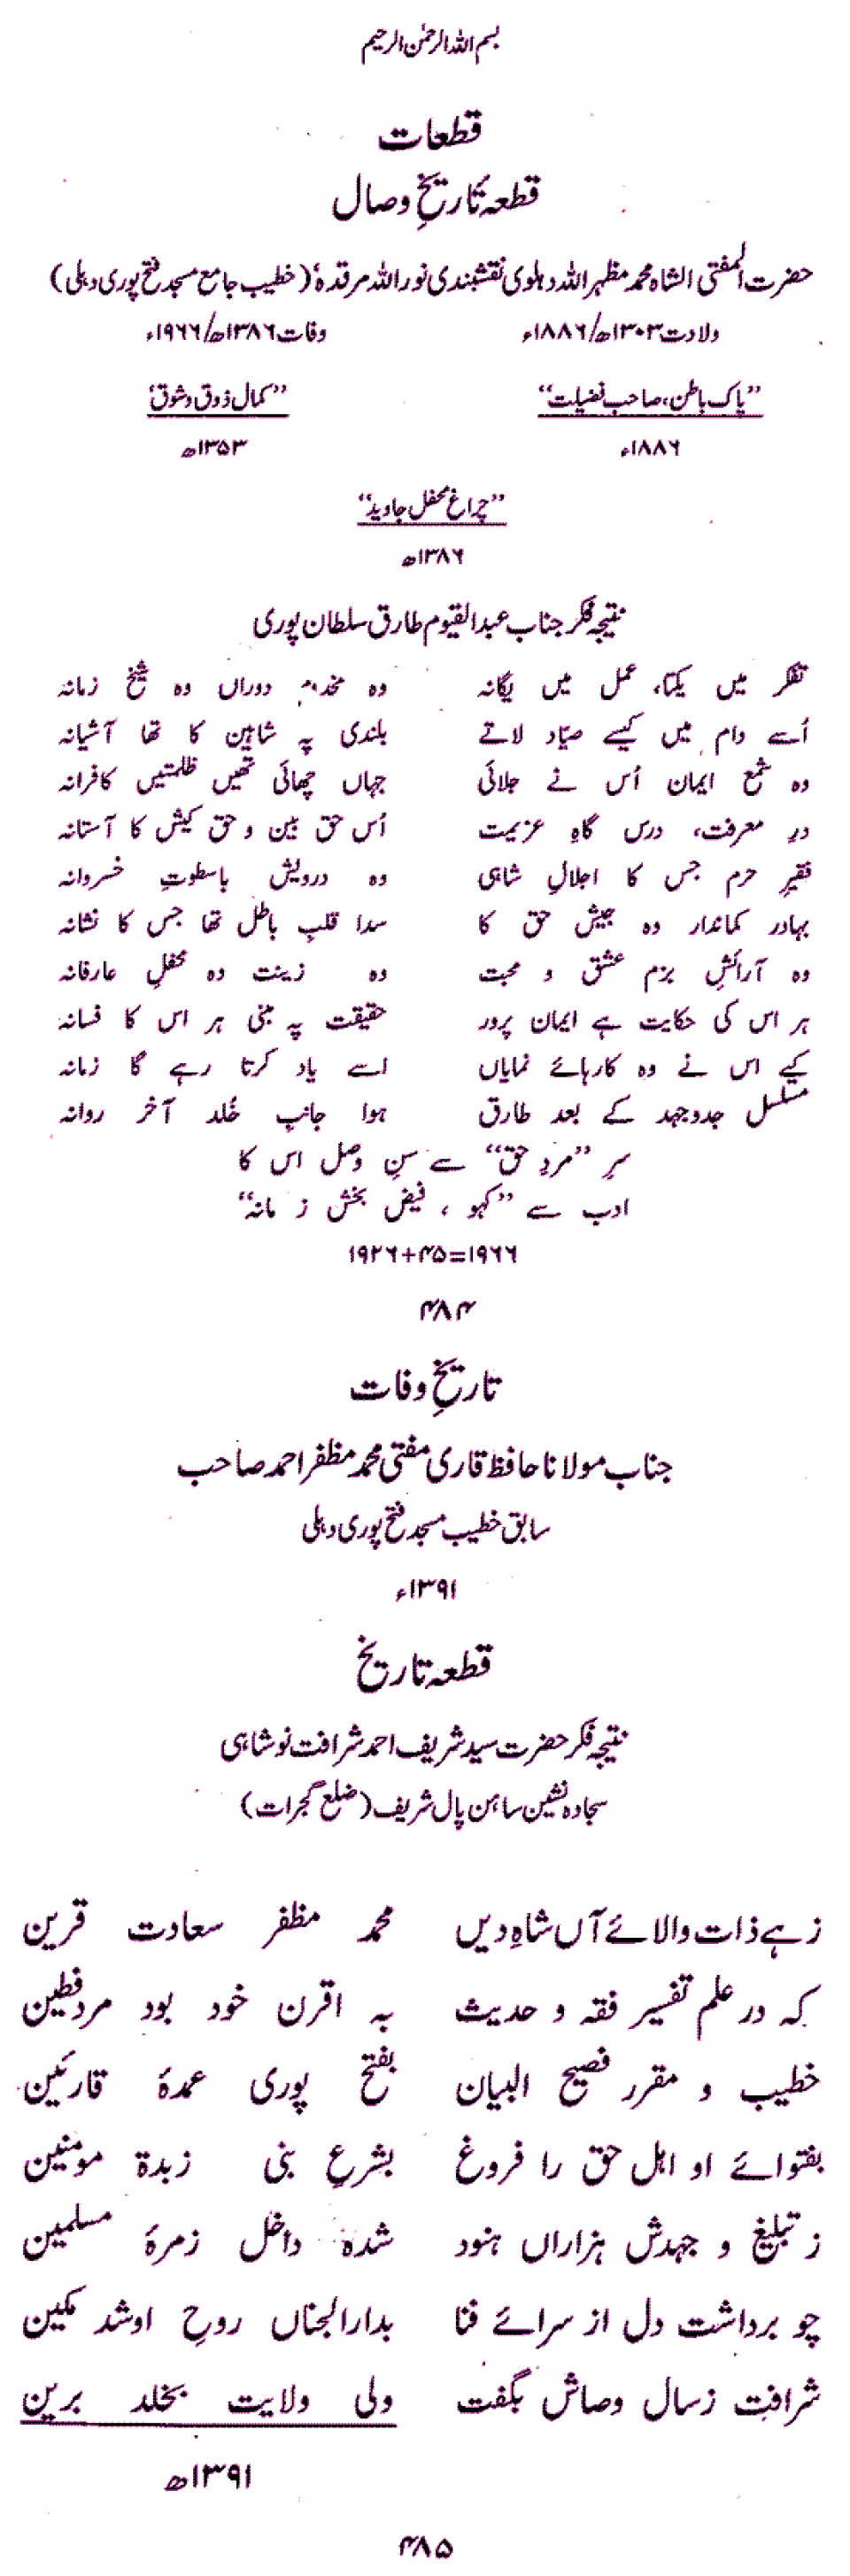 بسم اللہ الرحمٰن الرحیم
قطعات
قطعہ تاریخِ وصال
حضرت المفتی الشاہ محمد مظہر اللہ دہلوی نقشبندی نور اللہ مرقدہٗ (خطیب جامع مسجد فتح پوری دہلی)
ولادت ۱۳۰۳ھ/۱۸۸۶ء وفات ۱۳۸۶ھ/۱۹۶۶ء
”پاک باطن، صاحب فضیلت“ ”کمال ذوق و شوق“
۱۸۸۶ء ۱۳۵۳ھ
”چراغ محفل جاوید“
۱۳۸۶ھ
نتیجہ فکر جناب عبدالقیوم طارق سلطان پوری
تفکر میں یکتا، عمل میں یگانہ وہ مخدوم دوراں وہ شیخ زمانہ
اُسے دام میں کیسے صیّاد لاتے بلندی پہ شاہین کا تھا آشیانہ
وہ شمع ایمان اُس نے جلائی جہاں چھائی تھیں ظلمتیں کافرانہ
درِ معرفت، درس گاہِ عزیمت اُس حق بین و حق کیش کا آستانہ
فقیرِ حرم جس کا اجلالِ شاہی وہ درویش باسطوتِ خسروانہ
بہادر کماندار وہ جیش حق کا سدا قلبِ باطل تھا جس کا نشانہ
وہ آرائشِ بزم عشق و محبت وہ زینت دہ محفلِ عارفانہ
ہر اس کی حکایت ہے ایمان پرور حقیقت پہ مبنی ہر اس کا فسانہ
کیے اس نے وہ کارہائے نمایاں اسے یاد کرتا رہے گا زمانہ
مسلسل جدوجہد کے بعد طارق ہوا جانبِ خُلد آخر روانہ
سرِ ”مردِ حق“ سے سنِ وصل اس کا
ادب سے ”کہو ، فیض بخش ز مانہ“
۱۹۲۶+۴۵=۱۹۶۶
۴۸۴
تاریخِ وفات
جناب مولانا حافظ قاری مفتی محمد مظفر احمد صاحب
سابق خطیب مسجد فتح پوری دہلی
۱۳۹۱ء
قطعہ تاریخ
نتیجہ فکر حضرت سید شریف احمد شرافت نوشاہی
سجادہ نشین ساہن پال شریف (ضلع گجرات)
زہے ذات والائے آں شاہِ دیں محمد مظفر سعادت قرین
کہ در علم تفسیر فقہ و حدیث بہ اقرن خود بود مرد فطین
خطیب و مقرر فصیح البیان بفتح پوری عمدۂ قارئین
بفتوائے او اہل حق را فروغ بشرعِ بنی زبدۃ مومنین
ز تبلیغ و جہدش ہزاراں ہنود شدہ داخل زمرۂ مسلمین
چو برداشت دل از سرائے فنا بدارالجناں روحِ اوشد مکین
شرافت زسال وصاش بگفت ولی ولایت بخلد برین
۱۳۹۱ھ
۴۸۵